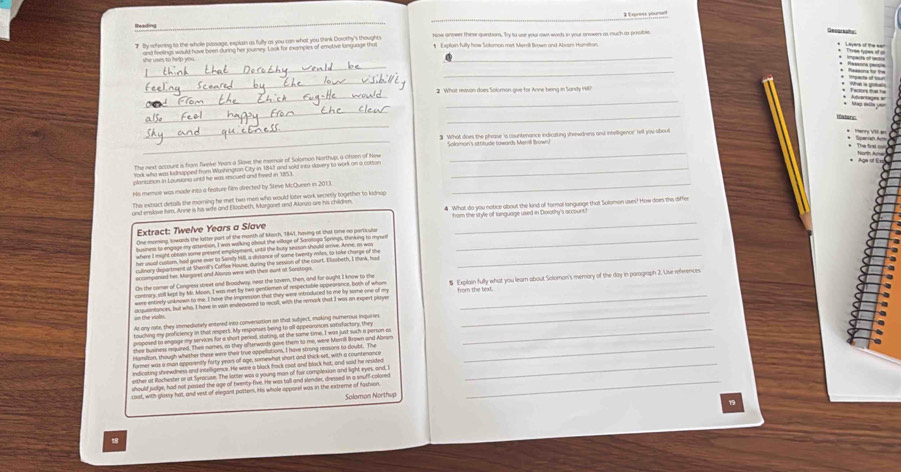 Reading
7 By referring to the whole passage, explain as fully as you can what you think Dorothy's thoughts
and feelings would have been during her journey. Look for examples of emotive language that
she uses to help you.
I think that Dorothy would be
feeling sceared by the low visibility
and from the thick fug. He would
also feel happy from the clear
sky and quietness
The next account is from Twelve Years a Slave, the memoir of Solomon Northup, a citizen of New
York who was kidnapped from Washington City in 1841 and sold into slavery to work on a cotton
plantation in Louisiana until he was rescued and freed in 1853.
His memoir was made into a feature film directed by Steve McQueen in 2013.
This extract details the morning he met two men who would later work secretly together to kidnap
and enslave him. Anne is his wife and Elizabeth, Margaret and Alonzo are his children.
Extract: Twelve Years a Slave
One morning, towards the latter part of the month of March, 1841, having at that time no particular
business to engage my attention, I was walking about the village of Saratoga Springs, thinking to myself
where I might obtain some present employment, until the busy season should arrive. Anne, as was
her usual custom, had gone over to Sandy Hill, a distance of some twenty miles, to take charge of the
culinary department at Sherrill's Coffee House, during the session of the court. Elizabeth, I think, had
accompanied her. Margaret and Alonzo were with their aunt at Saratoga.
On the corner of Congress street and Broadway, near the tavern, then, and for aught I know to the
contrary, still kept by Mr. Moon, I was met by two gentlemen of respectable appearance, both of whom
were entirely unknown to me. I have the impression that they were introduced to me by some one of my
acquaintances, but who, I have in vain endeavored to recall, with the remark that I was an expert player
on the violin.
At any rate, they immediately entered into conversation on that subject, making numerous inquiries
touching my proficiency in that respect. My responses being to all appearances satisfactory, they
proposed to engage my services for a short period, stating, at the same time, I was just such a person as
their business required. Their names, as they afterwards gave them to me, were Merrill Brown and Abram
Hamilton, though whether these were their true appellations, I have strong reasons to doubt. The
former was a man apparently forty years of age, somewhat short and thick-set, with a countenance
indicating shrewdness and intelligence. He wore a black frock coat and black hat, and said he resided
either at Rochester or at Syracuse. The latter was a young man of fair complexion and light eyes, and, I
should judge, had not passed the age of twenty-five. He was tall and slender, dressed in a snuff-colored
coat, with glossy hat, and vest of elegant pattern. His whole apparel was in the extreme of fashion.
Solomon Northup
18
2 Express yourself
Now answer these questions. Try to use your own words in your answers as much as possible.
1 Explain fully how Solomon met Merrill Brown and Abram Hamilton.
2 What reason does Solomon give for Anne being in Sandy Hill?
3 What does the phrase 'a countenance indicating shrewdness and intelligence' tell you about
Solomon's attitude towards Merrill Brown?
4 What do you notice about the kind of formal language that Solomon uses? How does this differ
from the style of language used in Dorothy's account?
5 Explain fully what you learn about Solomon's memory of the day in paragraph 2. Use references
from the text.
19
Geography:
Layers of the
Three types of
Impacts of
Reasons people
Reasons for the
Impacts of
What is
Factors that
Advantages
Map skills
History:
Henry VIII
Spanish
The first
North
Age of